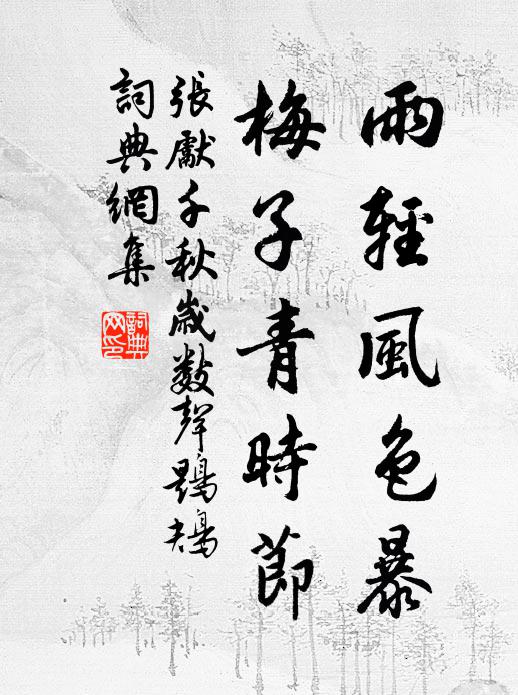 雨輕風色暴
梅子青時節
張獻千秋歲數聲鶗鴂
詞典網集
詞典網印